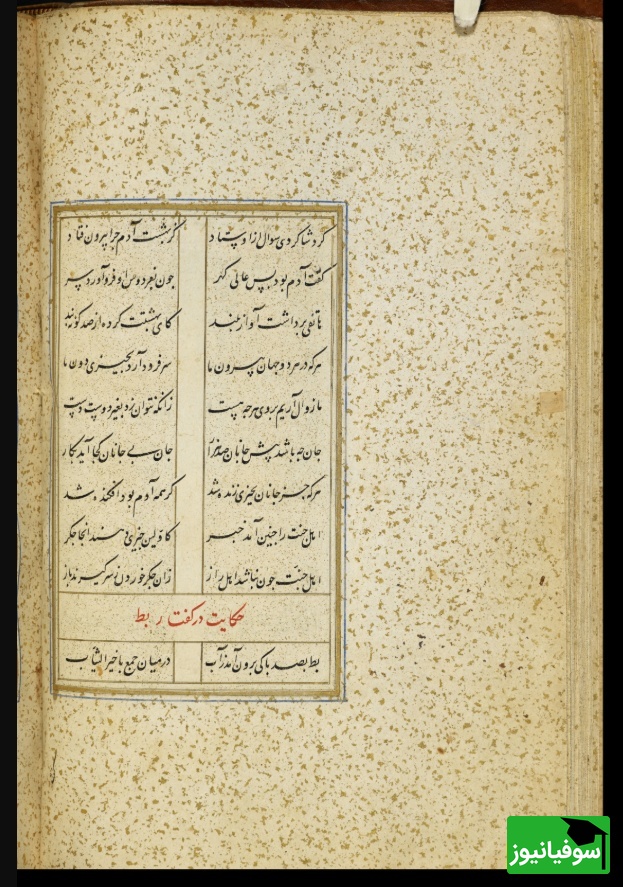 کرد شاکردی سوال از اوستاد کز بهشت آدم چرا بیرون فتاد
کفت آدم بود بس عالی کهر چون بفردوس او فرو آورد سر
هاتفی برداشت آواز بلند کای بهشتت کرده از صد کونه بند
هرکه در هر دو جهان بیرون ما سر فرود آرد بچیزی دون ما
ما زوال آریم بر وی هرچه هست زانکه نتوان زد بغیر دوست دست
جان چه باشد پیش جانان صد هزار جان بی جانان کجا آید بکار
هرکه جز جانان بچیزی زنده شد کر همه آدم بود افکنده شد
اهل جنت را چنین آمد خبر کاولین چیزی دهند انجا جکر
اهل جنت چون نباشد اهل راز زان جکر خوردن ز سر کیرند باز
حکایت در کفت ر بط
بط بصد پاکی برون آمد ز آب در میان جمع با خیر الثیاب
سوفیانیوز